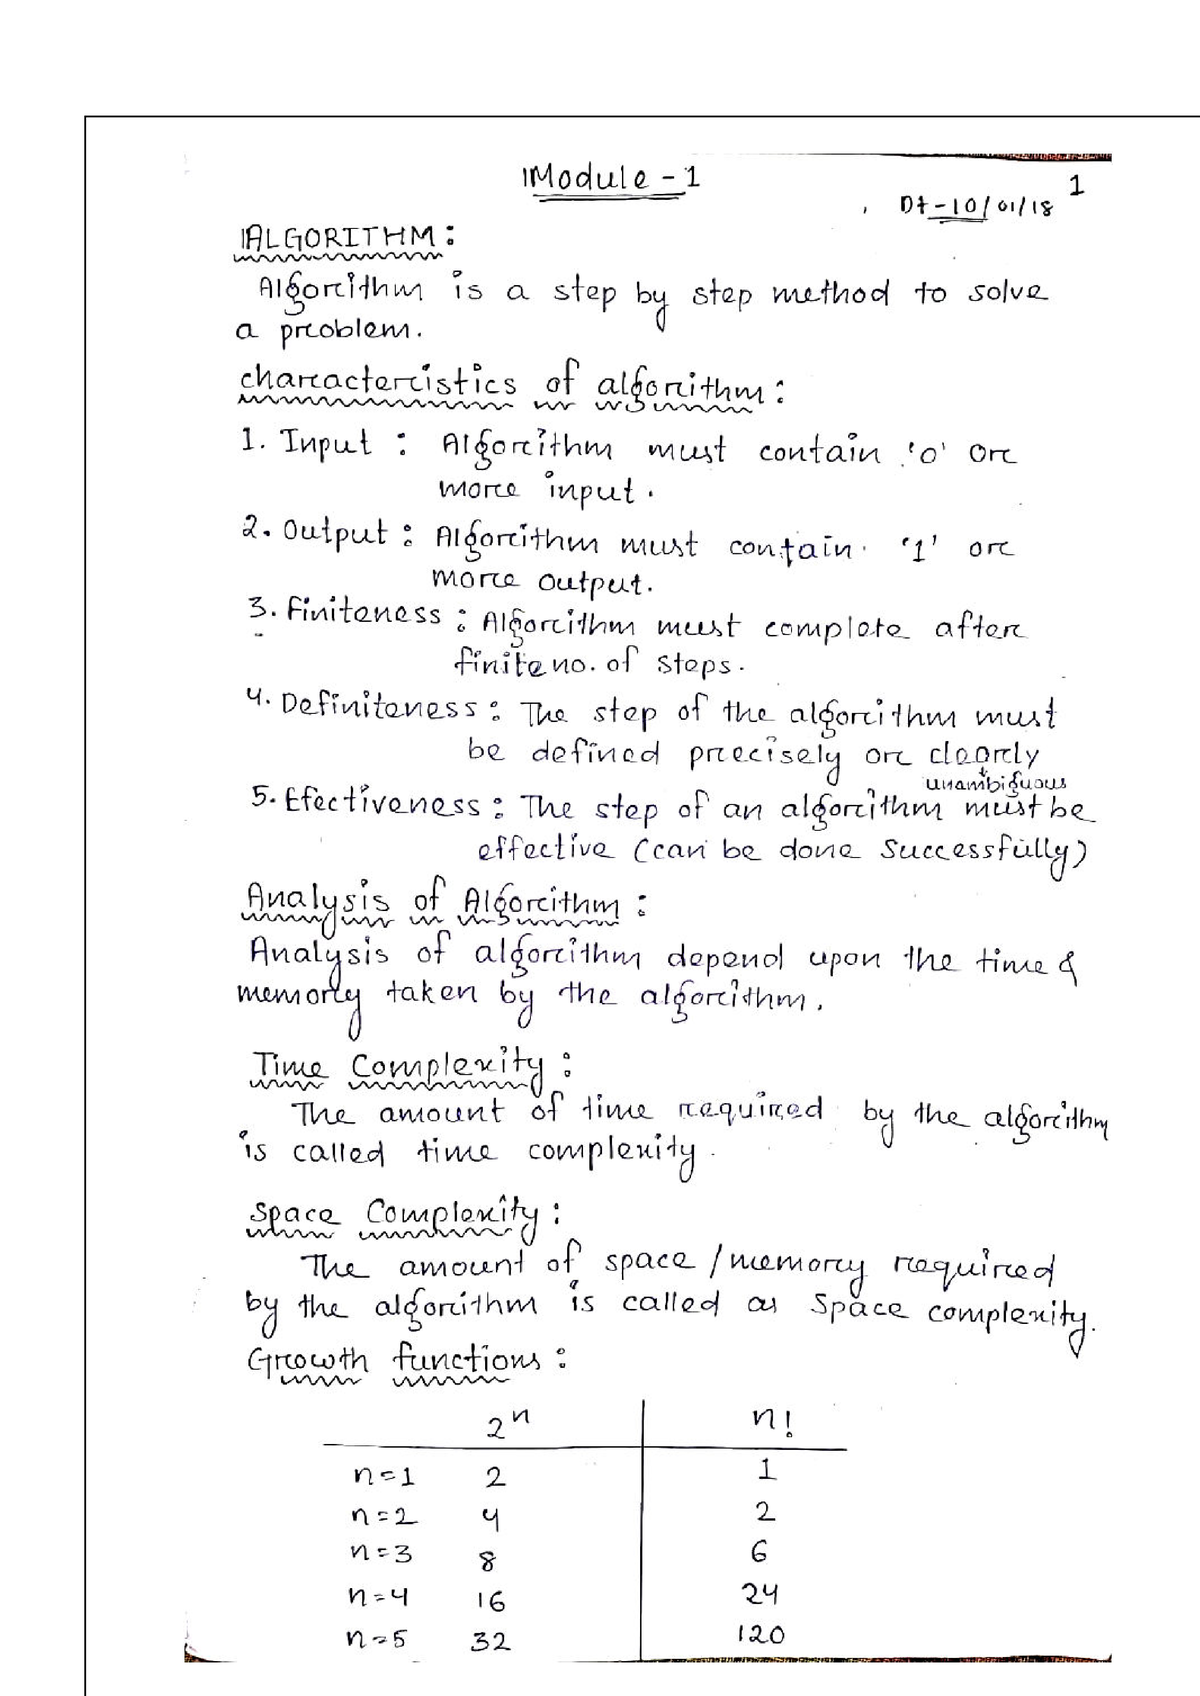 Module - 1
1
Dt - 10/01/18
ALGORITHM:
Algorithm is a step by step method to solve
a problem.
characteristics of algorithm:
1. Input : Algorithm must contain '0' or
more input.
2. Output : Algorithm must contain '1' or
more output.
3. Finiteness : Algorithm must complete after
finite no. of steps.
4. Definiteness : The step of the algorithm must
be defined precisely or clearly
unambiguous
5. Efectiveness : The step of an algorithm must be
effective (can be done successfully)
Analysis of Algorithm :
Analysis of algorithm depend upon the time &
memory taken by the algorithm.
Time Complexity :
The amount of time required by the algorithm
is called time complexity.
Space Complexity :
The amount of space / memory required
by the algorithm is called as space complexity.
Growth functions :
2^n n!
n=1 2 1
n=2 4 2
n=3 8 6
n=4 16 24
n=5 32 120